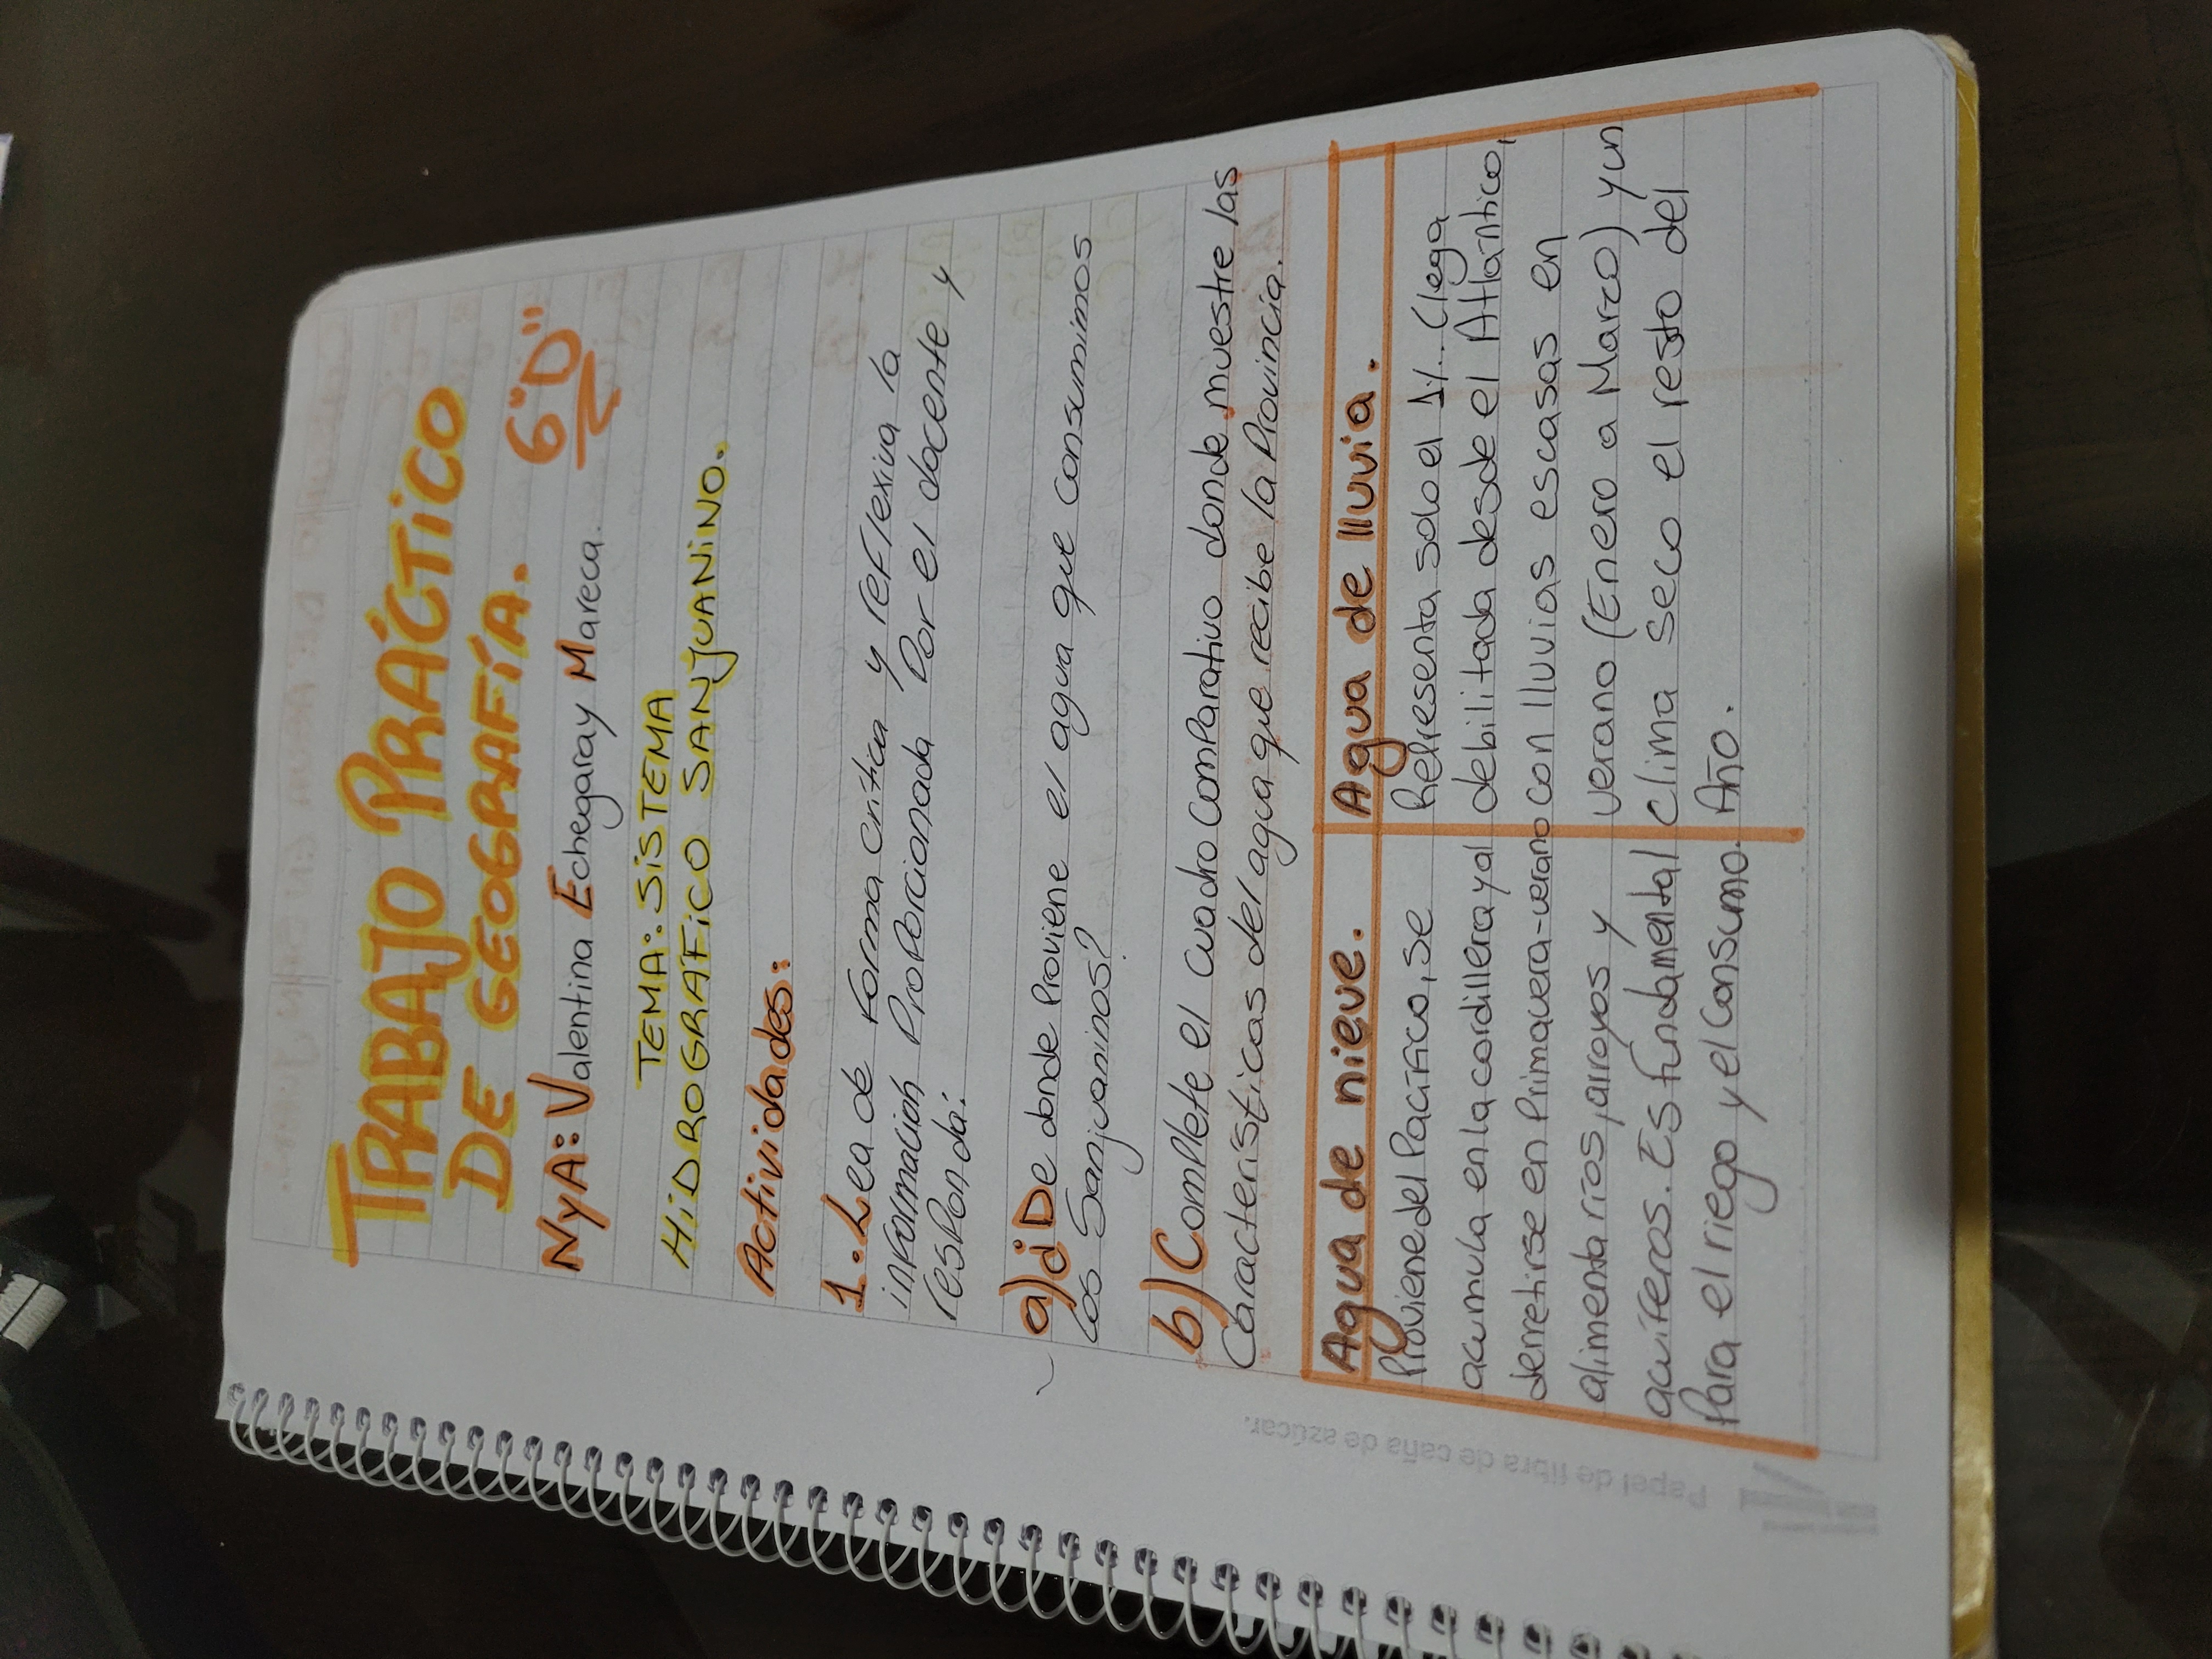 TRABAJO PRÁCTICO
DE GEOGRAFÍA.
NyA: Valentina Echegaray Mareca. 6"D"
TEMA: SISTEMA
HIDROGRÁFICO SANJUANINO.
Actividades:
1. Lea de forma crítica y reflexiva la
información proporcionada por el docente y
respondá:
a) ¿De donde proviene el agua que consumimos
los Sanjuaninos?
b) Complete el cuadro comparativo donde muestre las
características del agua que recibe la provincia.
Agua de nieve.
Proviene del Pacífico, se
acumula en la cordillera y al
derretirse en primavera-verano
alimenta ríos, arroyos y
acuíferos. Es fundamental
para el riego y el consumo.
Agua de lluvia.
Representa solo el 1%. Llega
debilitada desde el Atlántico,
con lluvias escasas en
verano (Enero a Marzo) y un
clima seco el resto del
Año.
Papel de fibra de caña de azúcar.